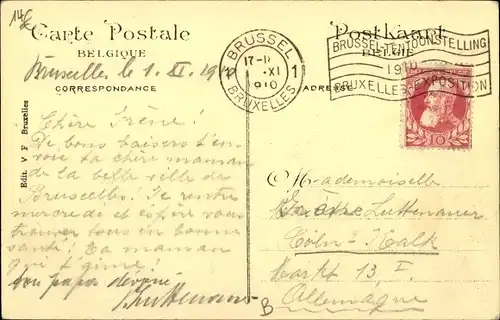 14€
Carte Postale
BELGIQUE
PostKaart
BELGIË
BRUSSEL 1
17-
XI
1910
BRUXELLES
BRUSSEL-TENTOONSTELLING
1910
BRUXELLES-EXPOSITION
10
Bruxelles le 1. XI. 1910
CORRESPONDANCE
ADRESSE
Edit. V F Bruxelles
Chère Irène!
De bons baisers t'en-
voie ta chère maman
de la belle ville de
Bruxelles. Je rentre
mercredi et espère vous
trouver tous en bonne
santé! Ta maman
qui t'aime!
ton papa dévoué
Luttenauer
Mademoiselle
Irène Luttenauer
Cöln-Kalk
Markt 13, I.
Allemagne
B